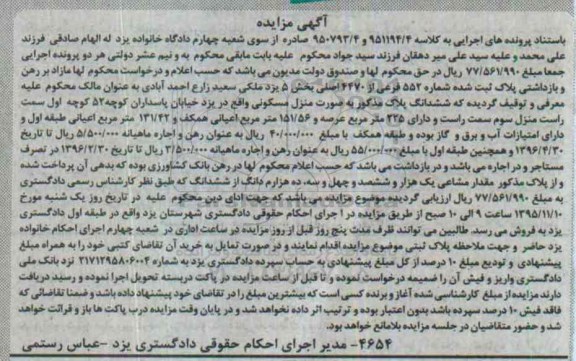 آگهی مزایده
باستناد پرونده های اجرایی به کلاسه ۹۵۱۱۹۴/۴ و ۹۵۰۷۹۳/۴ صادره از سوی شعبه چهارم دادگاه خانواده یزد له الهام صادقی فرزند
علی محمد و علیه سید علی میر دهقان فرزند سید جواد محکوم علیه بابت مابقی محکوم به و نیم عشر دولتی هر دو پرونده اجرایی
جمعا مبلغ ۷۷/۵۶۱/۹۹۰ ریال در حق محکوم لها و صندوق دولت مدیون می باشد که حسب اعلام و درخواست محکوم لها مازاد بر رهن
و بازداشتی پلاک ثبت شماره ۵۵۲ فرعی از ۴۴۷۰ اصلی بخش ۵ یزد ملکی سعید زارع احمد آبادی به عنوان مالک محکوم علیه
معرفی و توقیف گردیده که ششدانگ پلاک مذکور به صورت منزل مسکونی واقع در یزد خیابان پاسداران کوچه ۵۲ کوچه اول سمت
راست منزل سوم سمت راست و دارای ۲۲۵ متر مربع عرصه و ۱۵۱/۵۶ متر مربع اعیانی همکف و ۱۳۱/۴۲ متر مربع اعیانی طبقه اول و
دارای امتیازات آب و برق و گاز بوده و طبقه همکف با مبلغ ۴۰/۰۰۰/۰۰۰ ریال به عنوان رهن و اجاره ماهیانه ۵/۵۰۰/۰۰۰ ریال تا تاریخ
۱۳۹۶/۴/۳۰ و همچنین طبقه اول با مبلغ ۵۵/۰۰۰/۰۰۰ ریال به عنوان رهن و اجاره ماهیانه ۳/۵۰۰/۰۰۰ ریال تا تاریخ ۱۳۹۶/۲/۳۰ در تصرف
مستاجر و در اجاره می باشد و در بازداشت می باشد که حسب اعلام محکوم لها در رهن بانک کشاورزی بوده که بدهی آن پرداخت شده
و از پلاک مذکور مقدار مشاعی یک هزار و ششصد و چهل و سه، ده هزارم دانگ از ششدانگ که طبق نظر کارشناس رسمی دادگستری
به مبلغ ۷۷/۵۶۱/۹۹۰ ریال ارزیابی گردیده موضوع مزایده می باشد که جهت ادای دین محکوم علیه در تاریخ روز یک شنبه مورخ
۱۳۹۵/۱۱/۱۰ ساعت ۹ الی ۱۰ صبح از طریق مزایده در اجرای احکام حقوقی دادگستری شهرستان یزد واقع در طبقه اول دادگستری
یزد به فروش می رسد. طالبین می توانند ظرف مدت پنج روز قبل از روز مزایده در ساعت اداری در شعبه چهارم اجرای احکام خانواده
یزد حاضر و جهت ملاحظه پلاک ثبتی موضوع مزایده اقدام نمایند و در صورت تمایل به خرید آن تقاضای کتبی خود را به همراه مبلغ
پیشنهادی و تودیع مبلغ ۱۰ درصد از کل مبلغ پیشنهادی به حساب سپرده دادگستری یزد به شماره ۲۱۷۱۲۹۵۸۰۶۰۰۴ نزد بانک ملی
دادگستری واریز و فیش آن را ضمیمه درخواست نموده و تا قبل از ساعت مزایده در پاکت دربسته تحویل اجرا نموده و رسید دریافت
دارند مزایده از مبلغ کارشناسی شده آغاز و برنده کسی است که بیشترین مبلغ را در تقاضای خود پیشنهاد داده باشد و ضمنا تقاضائی که
فاقد فیش ۱۰ درصد سپرده باشد بدون اعتبار بوده و ترتیب اثر داده نخواهد شد و در پایان وقت مزایده درب پاکت ها باز و قرائت خواهد
شد و حضور متقاضیان در جلسه مزایده بلامانع خواهد بود.
۴۶۵۴- مدیر اجرای احکام حقوقی دادگستری یزد -عباس رستمی